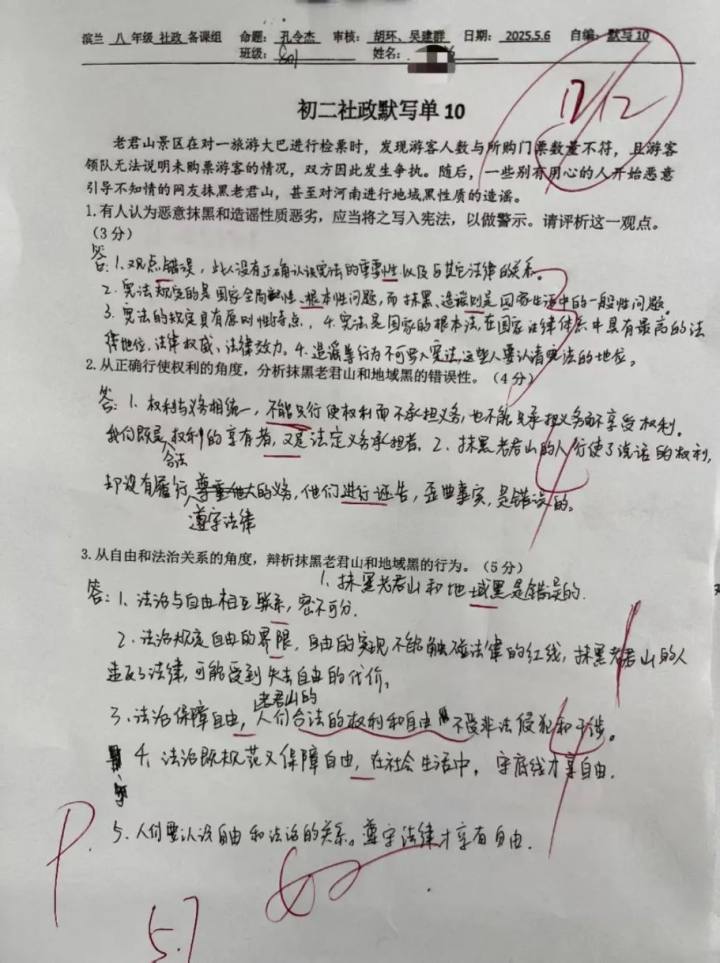 滨兰 八 年级 社政 备课组 命题: 孔令杰 审核: 胡环、吴建群 日期: 2025.5.6 自编: 默写10
班级: 801 姓名:
初二社政默写单 10
17 12
老君山景区在对一旅游大巴进行检票时，发现游客人数与所购门票数量不符，且游客
领队无法说明未购票游客的情况，双方因此发生争执。随后，一些别有用心的人开始恶意
引导不知情的网友抹黑老君山，甚至对河南进行地域黑性质的造谣。
1.有人认为恶意抹黑和造谣性质恶劣，应当将之写入宪法，以做警示。请评析这一观点。
（3 分）
答：1.观点错误，此人没有正确认识宪法的重要性以及与其它法律的关系。
2. 宪法规定的是国家全局性、根本性问题，而抹黑、造谣则是国家生活中的一般性问题。
3. 宪法的规定具有原则性特点，4.宪法是国家的根本法，在国家法律体系中具有最高的法
律地位、法律权威、法律效力。4.造谣等行为不可写入宪法，这些人要认清宪法的地位。
3
2.从正确行使权利的角度，分析抹黑老君山和地域黑的错误性。（4 分）
答：1. 权利与义务相统一，不能只行使权利而不承担义务，也不能只承担义务而不享受权利。
我们既是合法权利的享有者，又是法定义务承担者。2. 抹黑老君山的人行使了说话的权利，
却没有履行遵守法律的义务，他们进行诬告，歪曲事实，是错误的。
4
3.从自由和法治关系的角度，辩析抹黑老君山和地域黑的行为。（5 分）
1. 抹黑老君山和地域黑是错误的.
答：1、法治与自由相互联系，密不可分.
2、法治规定自由的界限，自由的实现不能触碰法律的红线，抹黑老君山的人
违反了法律，可能受到失去自由的代价。
3、法治保障自由，老君山的人们合法的权利和自由不受非法侵犯和干涉。
4、法治既规范又保障自由，在社会生活中，守底线才享自由.
5、人们要认识自由和法治的关系。遵守法律才享有自由.
5.7